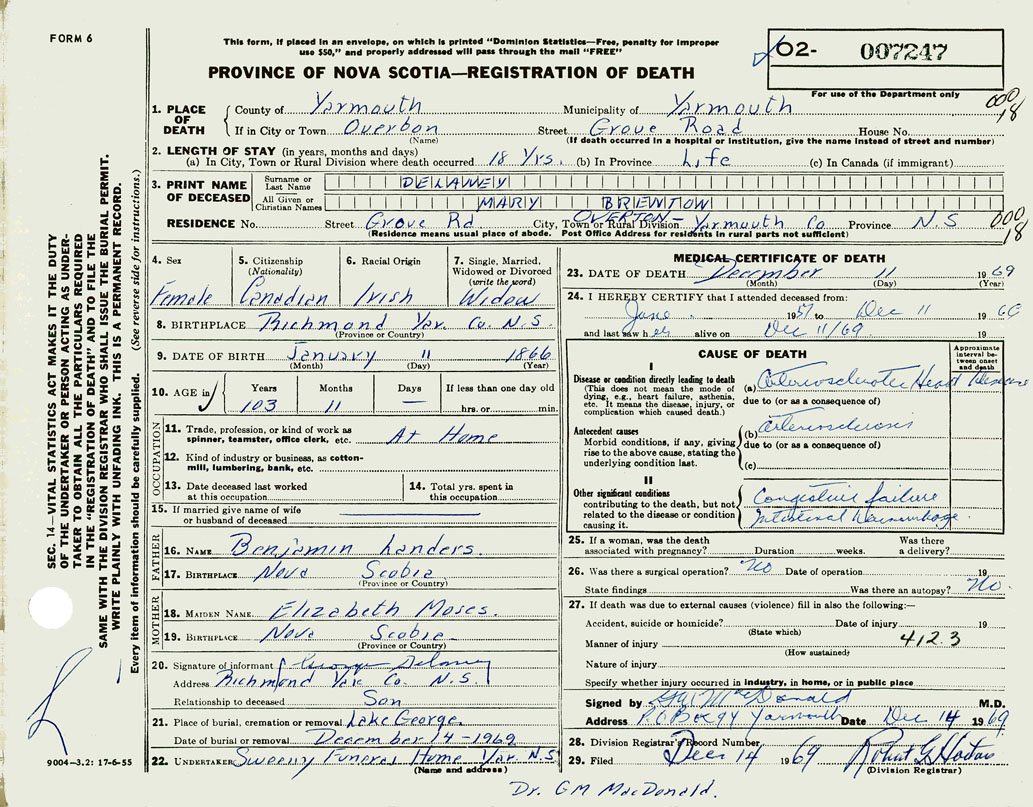 FORM 6
This form, if placed in an envelope, on which is printed "Dominion Statistics—Free, penalty for improper
use $50," and properly addressed will pass through the mail "FREE"
PROVINCE OF NOVA SCOTIA—REGISTRATION OF DEATH
O2- 007247
For use of the Department only
000
18
1. PLACE OF DEATH
County of Yarmouth Municipality of Yarmouth
If in City or Town Overton Street Grove Road House No.
(Name) (If death occurred in a hospital or institution, give the name instead of street and number)
2. LENGTH OF STAY (in years, months and days)
(a) In City, Town or Rural Division where death occurred 18 Yrs. (b) In Province Life (c) In Canada (if immigrant)
3. PRINT NAME OF DECEASED
Surname or Last Name DELANEY
All Given or Christian Names MARY BRENTON
RESIDENCE No. Street Grove Rd City, Town or Rural Division OVERTON— Yarmouth Co Province N.S
(Residence means usual place of abode. Post Office Address for residents in rural parts not sufficient)
000
18
4. Sex Female
5. Citizenship (Nationality) Canadian
6. Racial Origin Irish
7. Single, Married, Widowed or Divorced (write the word) Widow
8. BIRTHPLACE Richmond Yar. Co. N.S.
(Province or Country)
9. DATE OF BIRTH January 11 1866
(Month) (Day) (Year)
10. AGE in Years Months Days If less than one day old
103 11 — hrs. or min.
OCCUPATION
11. Trade, profession, or kind of work as spinner, teamster, office clerk, etc. At Home
12. Kind of industry or business, as cotton-mill, lumbering, bank, etc.
13. Date deceased last worked at this occupation
14. Total yrs. spent in this occupation
15. If married give name of wife or husband of deceased
FATHER
16. NAME Benjamin Landers.
17. BIRTHPLACE Nova Scotia
(Province or Country)
MOTHER
18. MAIDEN NAME Elizabeth Moses.
19. BIRTHPLACE Nova Scotia
(Province or Country)
20. Signature of informant George Delaney
Address Richmond Yar. Co. N.S.
Relationship to deceased Son
21. Place of burial, cremation or removal Lake George.
Date of burial or removal December 14-1969
22. UNDERTAKER Sweeny Funeral Home Yar. N.S.
(Name and address)
MEDICAL CERTIFICATE OF DEATH
23. DATE OF DEATH December 11 1969
(Month) (Day) (Year)
24. I HEREBY CERTIFY that I attended deceased from:
June 1957 to Dec 11 19
and last saw her alive on Dec 11/69. 19
CAUSE OF DEATH
Approximate interval between onset and death
I
Disease or condition directly leading to death
(This does not mean the mode of dying, e.g., heart failure, asthenia, etc. It means the disease, injury, or complication which caused death.)
(a) Arteriosclerotic Heart Disease
due to (or as a consequence of)
Antecedent causes
Morbid conditions, if any, giving rise to the above cause, stating the underlying condition last.
(b) Arteriosclerosis
due to (or as a consequence of)
(c)
II
Other significant conditions
contributing to the death, but not related to the disease or condition causing it.
Congestive failure
Intestinal Haemorrhage.
25. If a woman, was the death associated with pregnancy? Duration weeks. Was there a delivery?
26. Was there a surgical operation? No Date of operation 19
State findings Was there an autopsy? No.
27. If death was due to external causes (violence) fill in also the following:—
Accident, suicide or homicide? Date of injury 19
(State which)
Manner of injury 412.3
(How sustained)
Nature of injury
Specify whether injury occurred in industry, in home, or in public place
Signed by GM MacDonald M.D.
Address P.O. Box Yarmouth Date Dec 14 1969.
28. Division Registrar's Record Number
29. Filed Dec 14 1969
(Division Registrar)
Dr. GM MacDonald.
SEC. 14—VITAL STATISTICS ACT MAKES IT THE DUTY
OF THE UNDERTAKER OR PERSON ACTING AS UNDER-
TAKER TO OBTAIN ALL THE PARTICULARS REQUIRED
IN THE "REGISTRATION OF DEATH" AND TO FILE THE
SAME WITH THE DIVISION REGISTRAR WHO SHALL ISSUE THE BURIAL PERMIT.
WRITE PLAINLY WITH UNFADING INK. THIS IS A PERMANENT RECORD.
Every item of information should be carefully supplied. (See reverse side for instructions.)
9004—3.2: 17-6-55